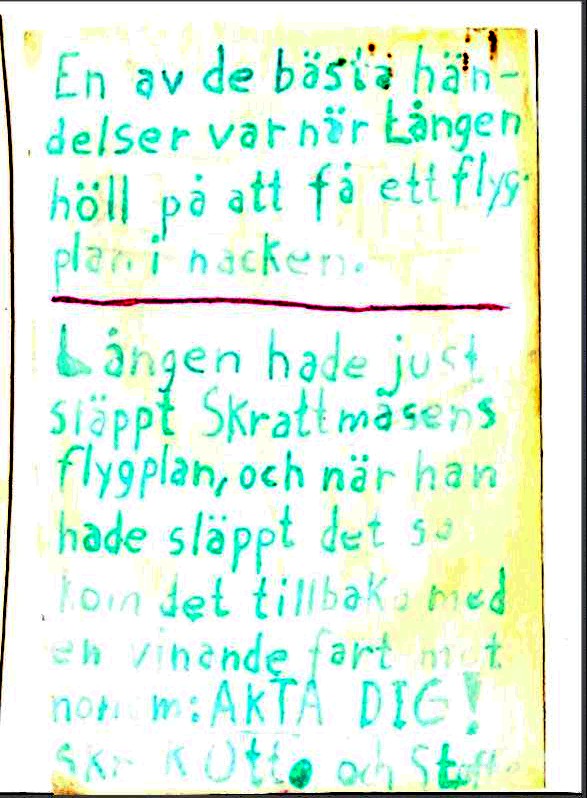 En av de bästa hän-
delser var när Lången
höll på att få ett flyg-
plan i nacken.
Lången hade just
släppt Skrattmåsens
flygplan, och när han
hade släppt det så
kom det tillbaka med
en vinande fart mot
honom: AKTA DIG!
och